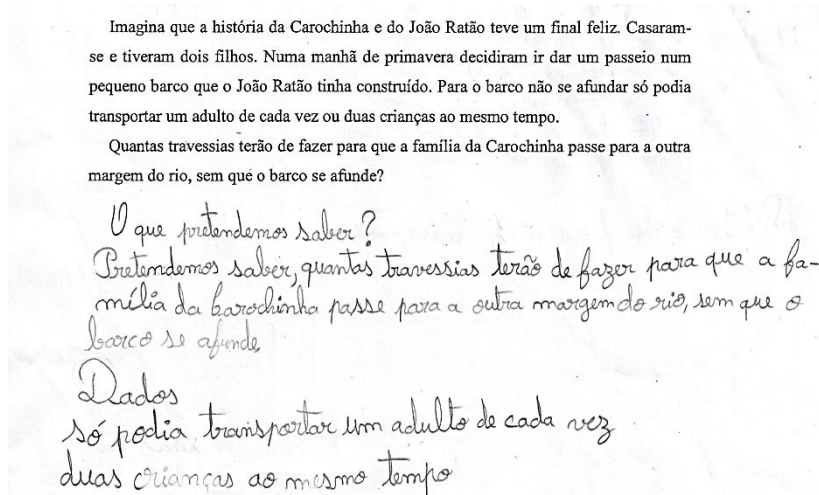 Imagina que a história da Carochinha e do João Ratão teve um final feliz. Casaram-
se e tiveram dois filhos. Numa manhã de primavera decidiram ir dar um passeio num
pequeno barco que o João Ratão tinha construído. Para o barco não se afundar só podia
transportar um adulto de cada vez ou duas crianças ao mesmo tempo.
Quantas travessias terão de fazer para que a família da Carochinha passe para a outra
margem do rio, sem que o barco se afunde?
O que pretendemos saber?
Pretendemos saber, quantas travessias terão de fazer para que a fa-
mília da Carochinha passe para a outra margem do rio, sem que o
barco se afunde.
Dados
só podia transportar um adulto de cada vez
duas crianças ao mesmo tempo